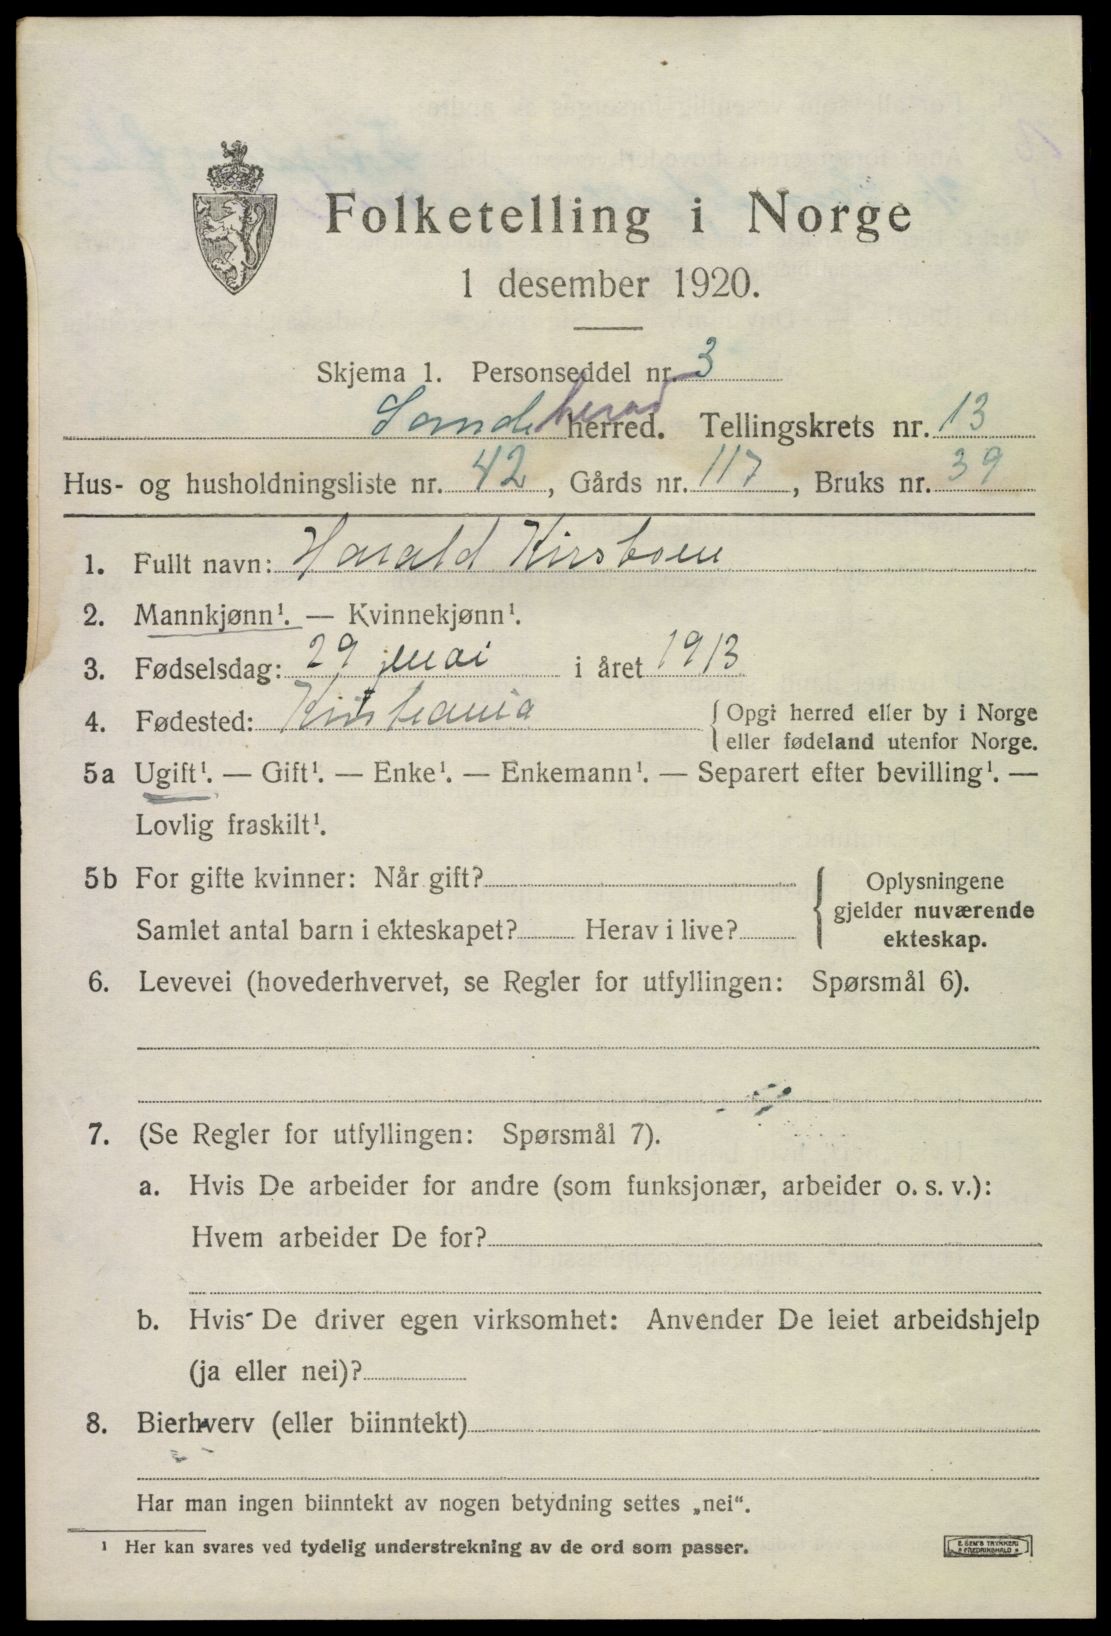 Folketelling i Norge
1 desember 1920.
Skjema 1. Personseddel nr. 3
Sandeherad herred. Tellingskrets nr. 13
Hus- og husholdningsliste nr. 42, Gårds nr. 117, Bruks nr. 39
1. Fullt navn: Harald
2. Mannkjønn¹. — Kvinnekjønn¹.
3. Fødselsdag: 29 mai i året 1913
4. Fødested: Kristiania { Opgi herred eller by i Norge
eller fødeland utenfor Norge.
5a Ugift¹. — Gift¹. — Enke¹. — Enkemann¹. — Separert efter bevilling¹. —
Lovlig fraskilt¹.
5b For gifte kvinner: Når gift? { Oplysningene
gjelder nuværende
Samlet antal barn i ekteskapet? Herav i live?
ekteskap.
6. Levevei (hovederhvervet, se Regler for utfyllingen: Spørsmål 6).
7. (Se Regler for utfyllingen: Spørsmål 7).
a. Hvis De arbeider for andre (som funksjonær, arbeider o. s. v.):
Hvem arbeider De for?
b. Hvis De driver egen virksomhet: Anvender De leiet arbeidshjelp
(ja eller nei)?
8. Bierhverv (eller biinntekt)
Har man ingen biinntekt av nogen betydning settes „nei“.
¹ Her kan svares ved tydelig understrekning av de ord som passer.
E. SEM'S TRYKKERI
FREDRIKSHALD